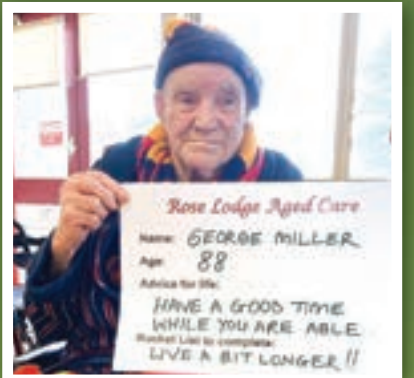 Rose Lodge Aged Care
Name: GEORGE MILLER
Age: 88
Advice for life:
HAVE A GOOD TIME
WHILE YOU ARE ABLE
Bucket List to complete:
LIVE A BIT LONGER !!